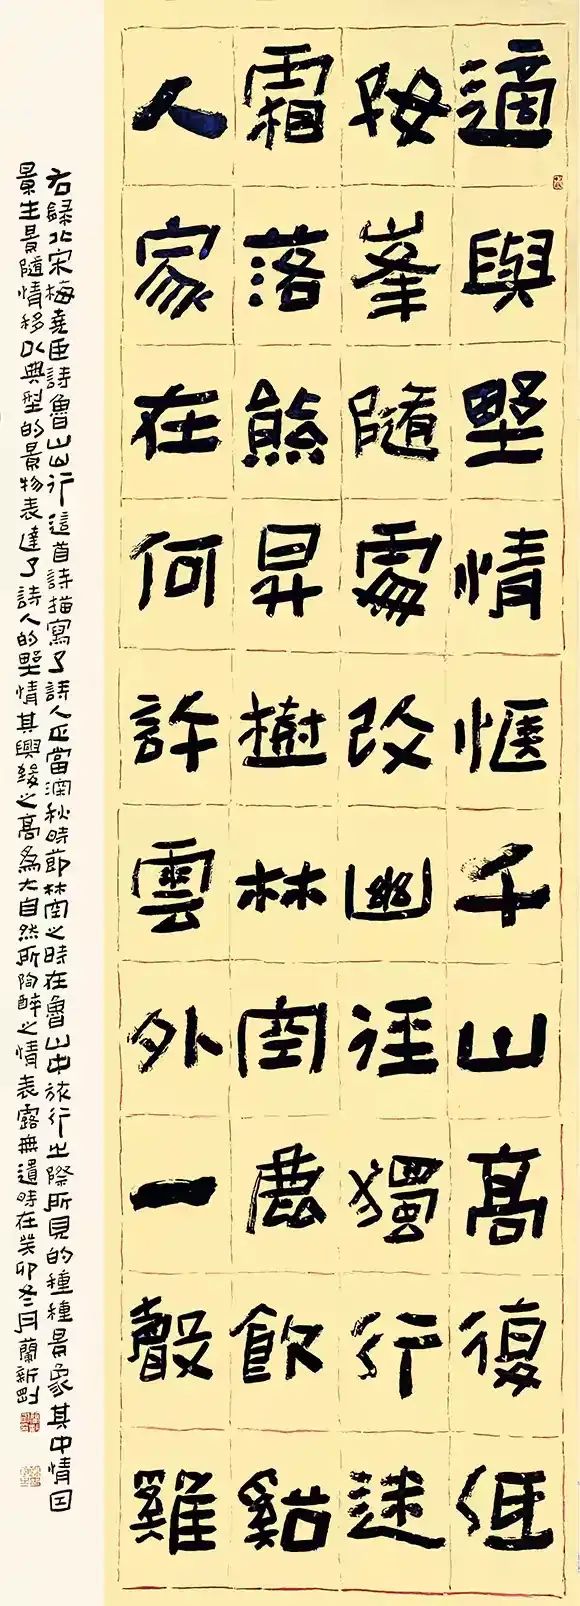 適與埜情愜千山高復低
好峯隨處改幽徑獨行迷
霜落熊昇樹林空鹿飲谿
人家在何許雲外一聲雞
右録北宋梅堯臣詩魯山山行這首詩描寫了詩人正當深秋時節林空之時在魯山中旅行之際所見的種種景象其中情因
景生景隨情移以典型的景物表達了詩人的埜情其興緻之高為大自然所陶醉之情表露無遺時在癸卯冬月蘭新剛